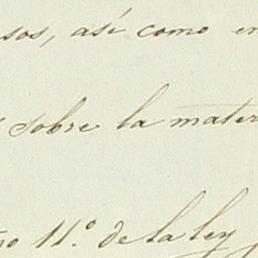 sos, así como en
sobre la mater
no 11.º de la ley